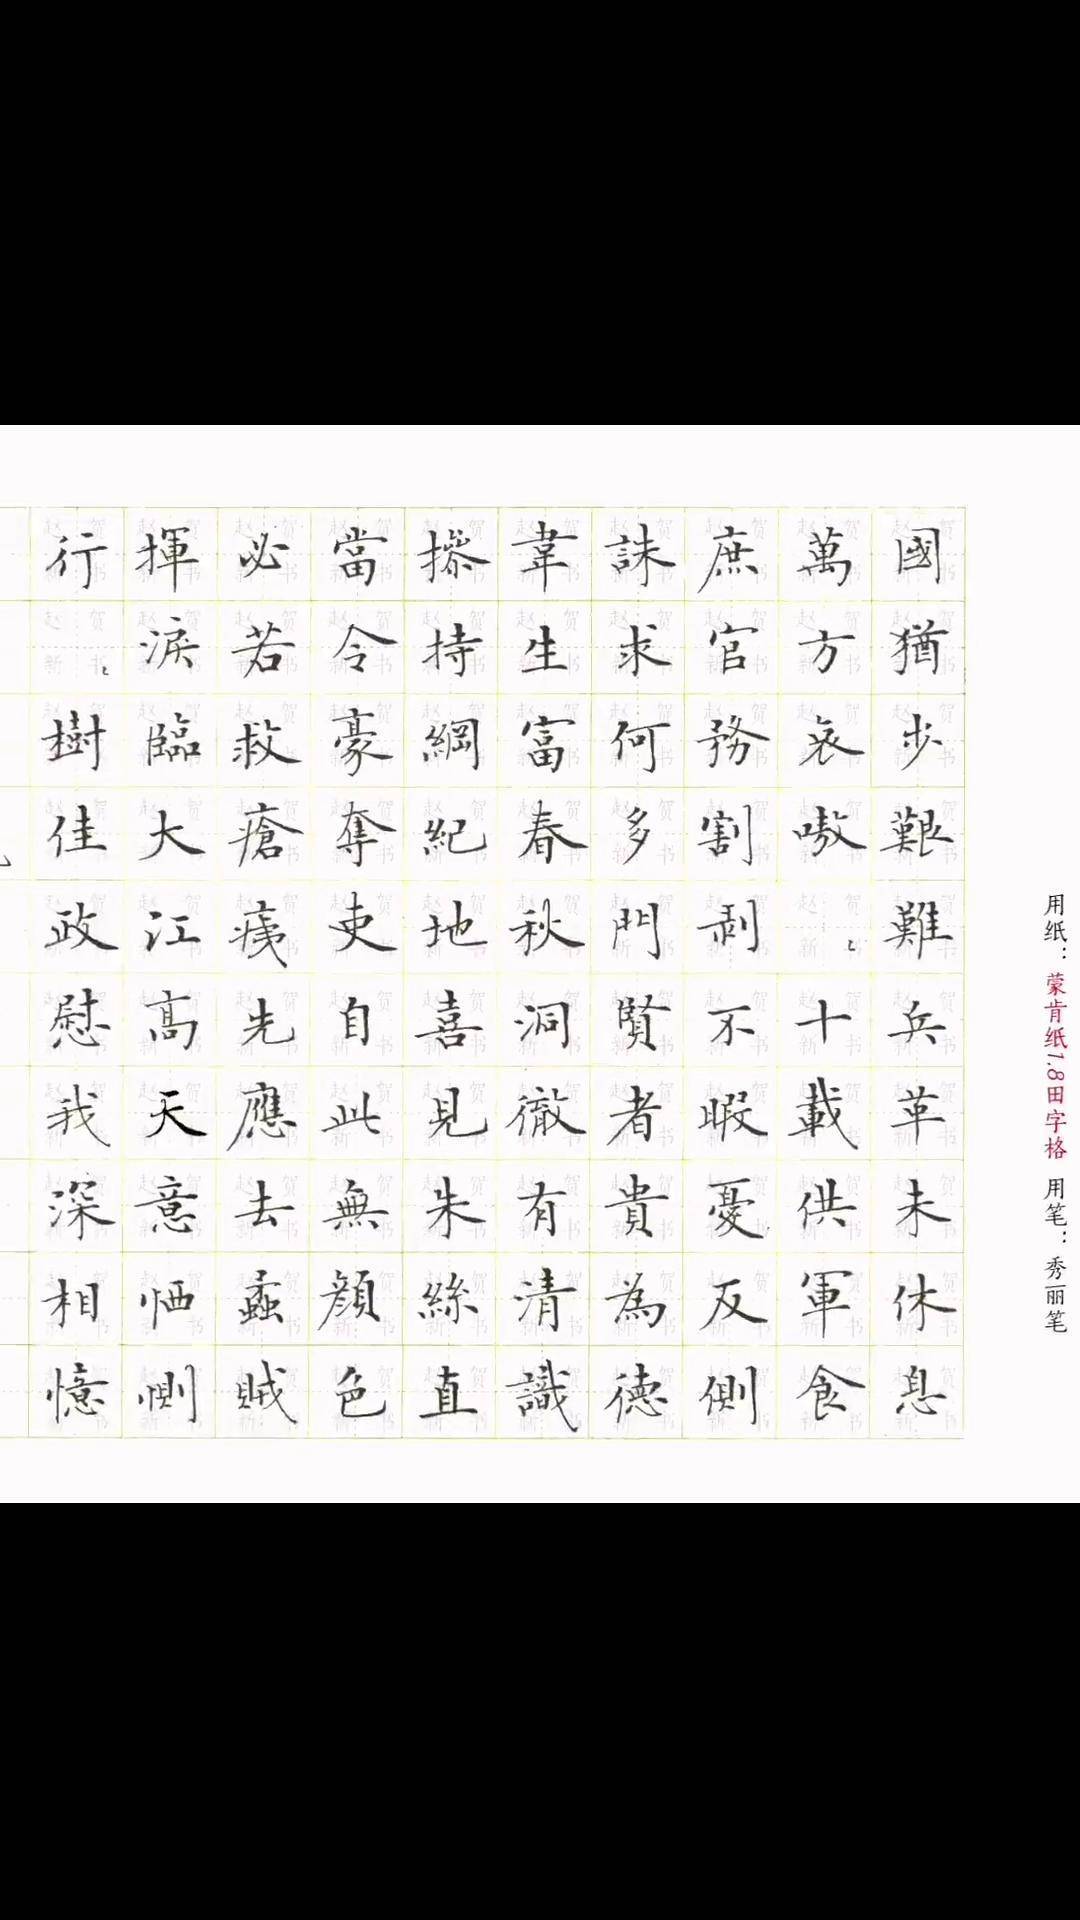 用纸：蒙肯纸1.8田字格 用笔：秀丽笔
國猶步艱難兵革未休息
萬方哀嗷〻十載供軍食
庶官務割剝不暇憂反側
誅求何多門賢者貴為德
韋生富春秋洞徹有清識
操持綱紀地喜見朱絲直
當令豪奪吏自此無顏色
必若救瘡痍先應去蟊賊
揮淚臨大江高天意恓惻
行〻樹佳政慰我深相憶
赵贺新书